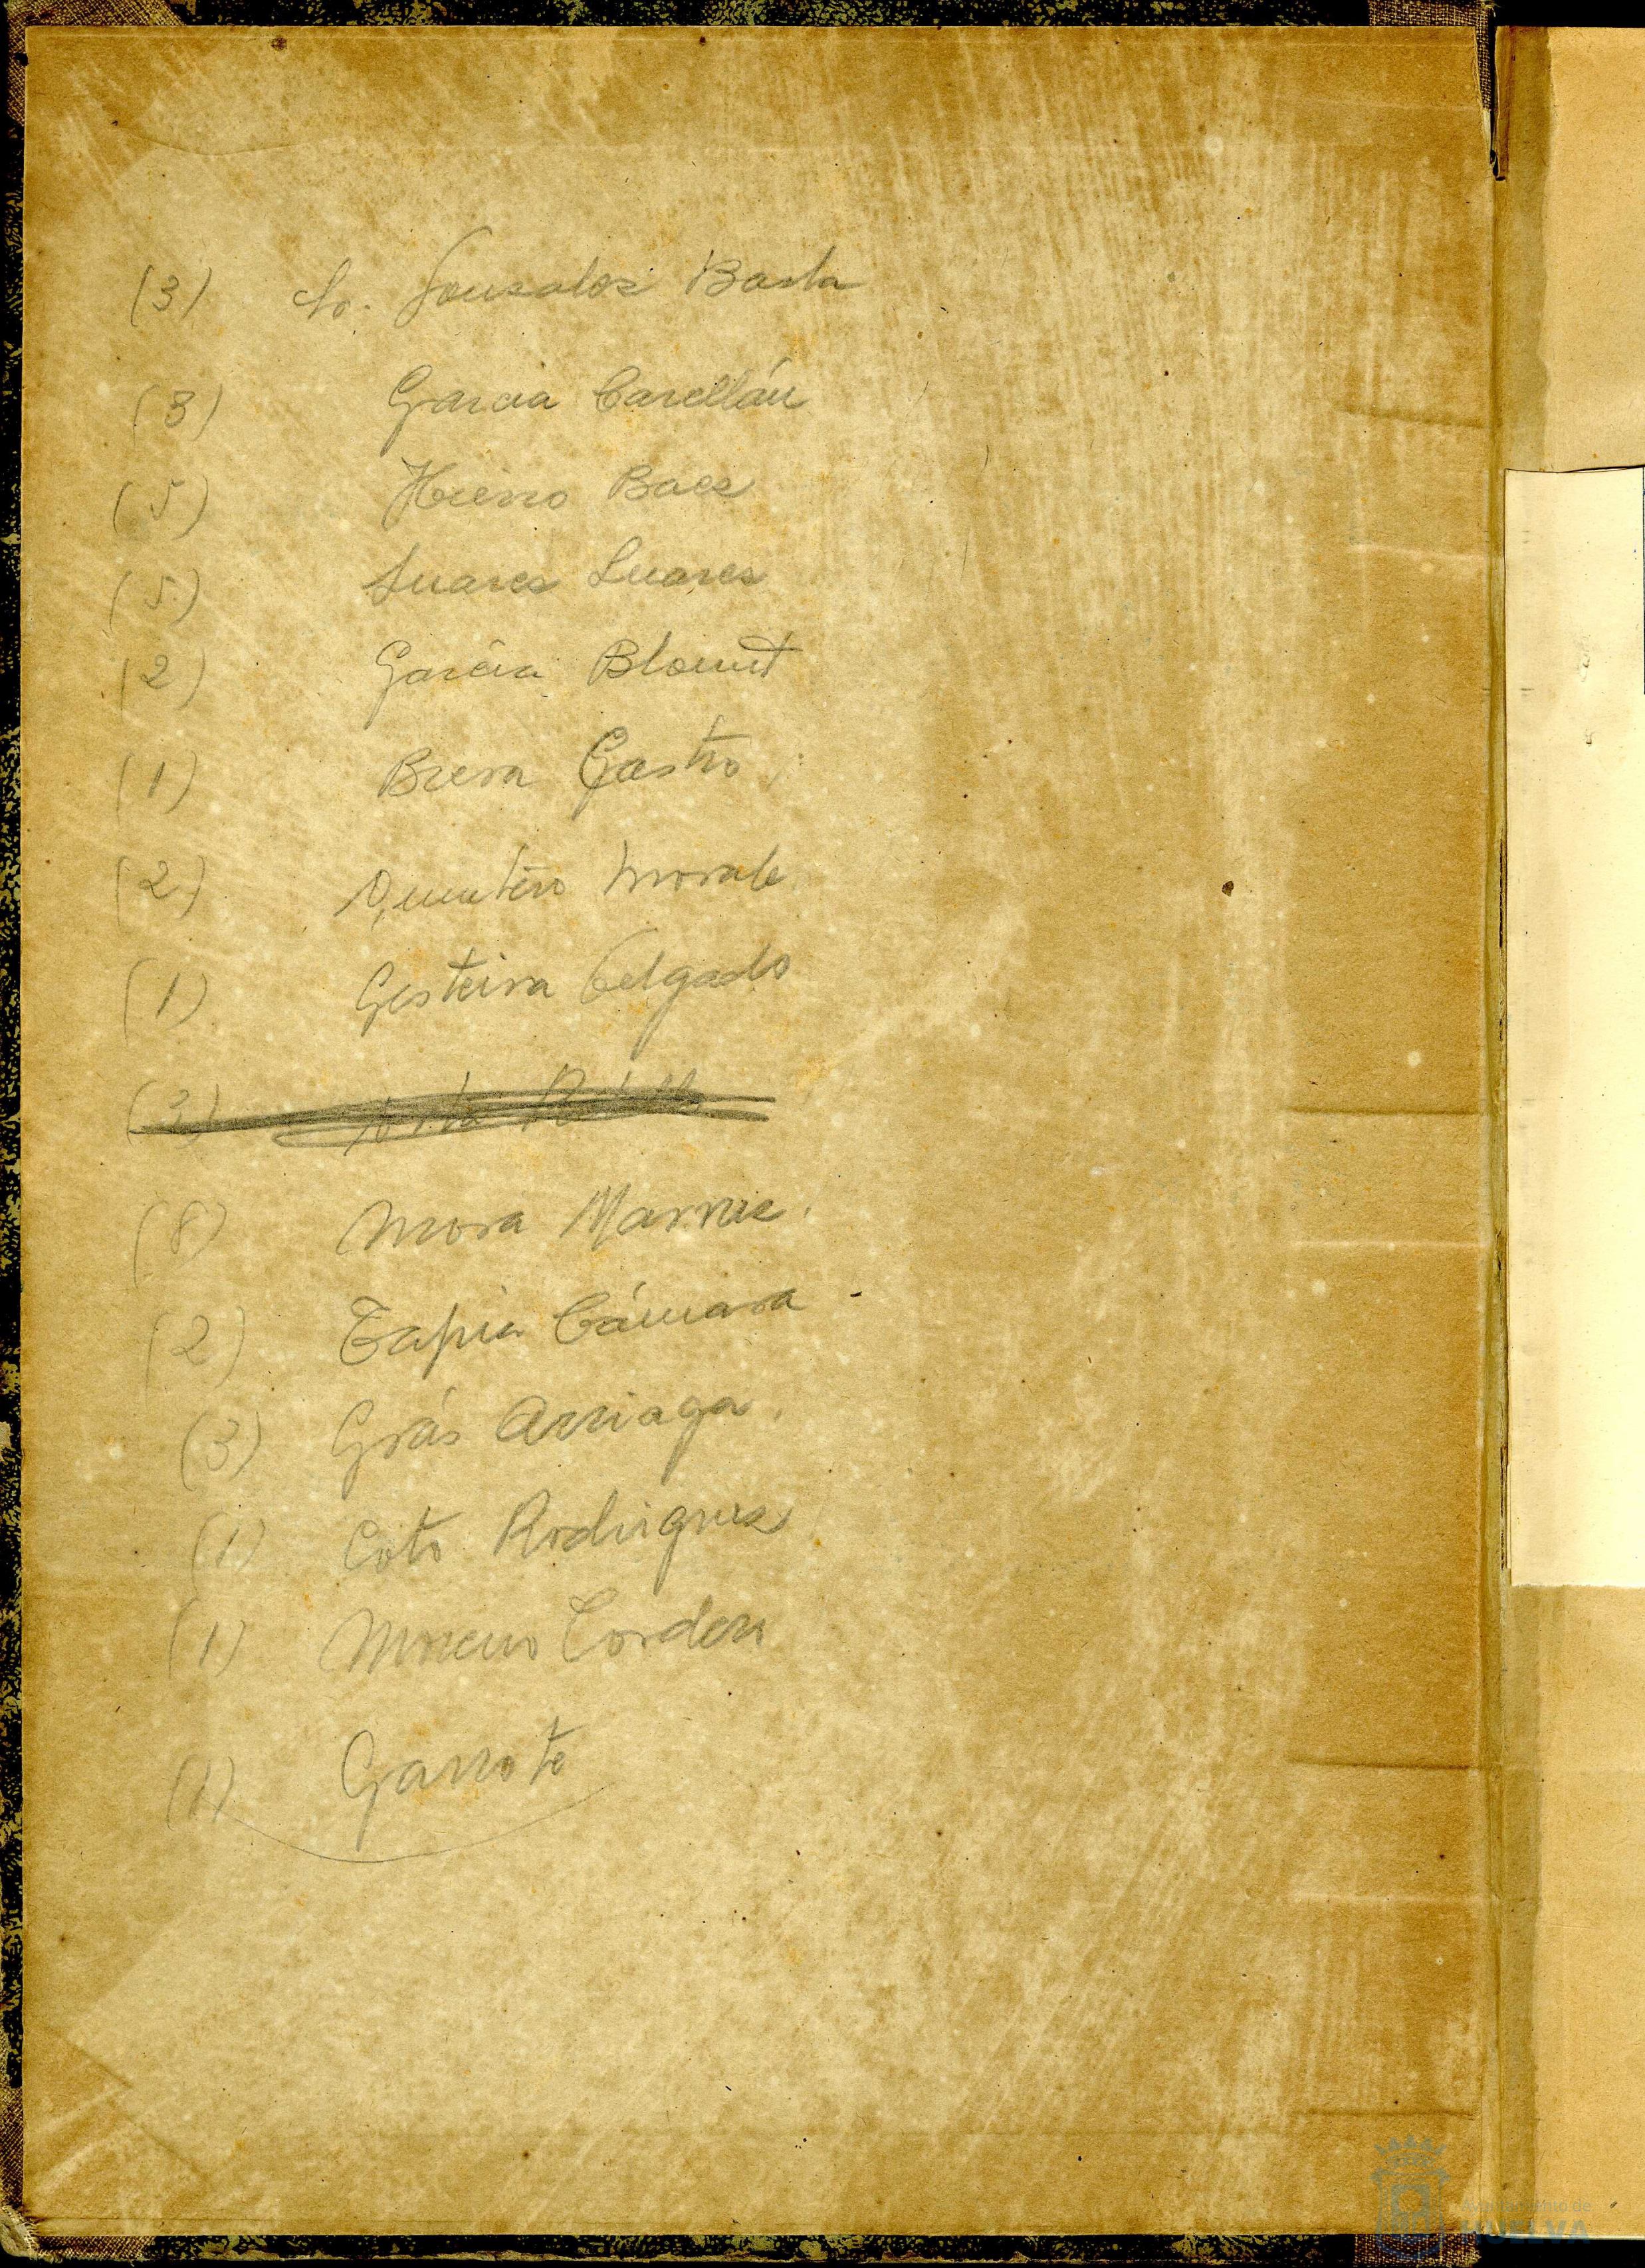 (3) Gonzalez Barba
(3) Garcia Casellán
(5) Hierro Baez
(5) Suarez Suarez
(2) García Blount
(1) Brera Castro
(2) Quintero Morale
(1) Gesteira Delgado
(3)
(8) Mora Narvaez.
(2) Tapia Cámara
(3) Grás Arriaga.
(1) Coto Rodriguez
(1) Moreno Cordero
(1) Garrote
Ayuntamiento de
HUELVA